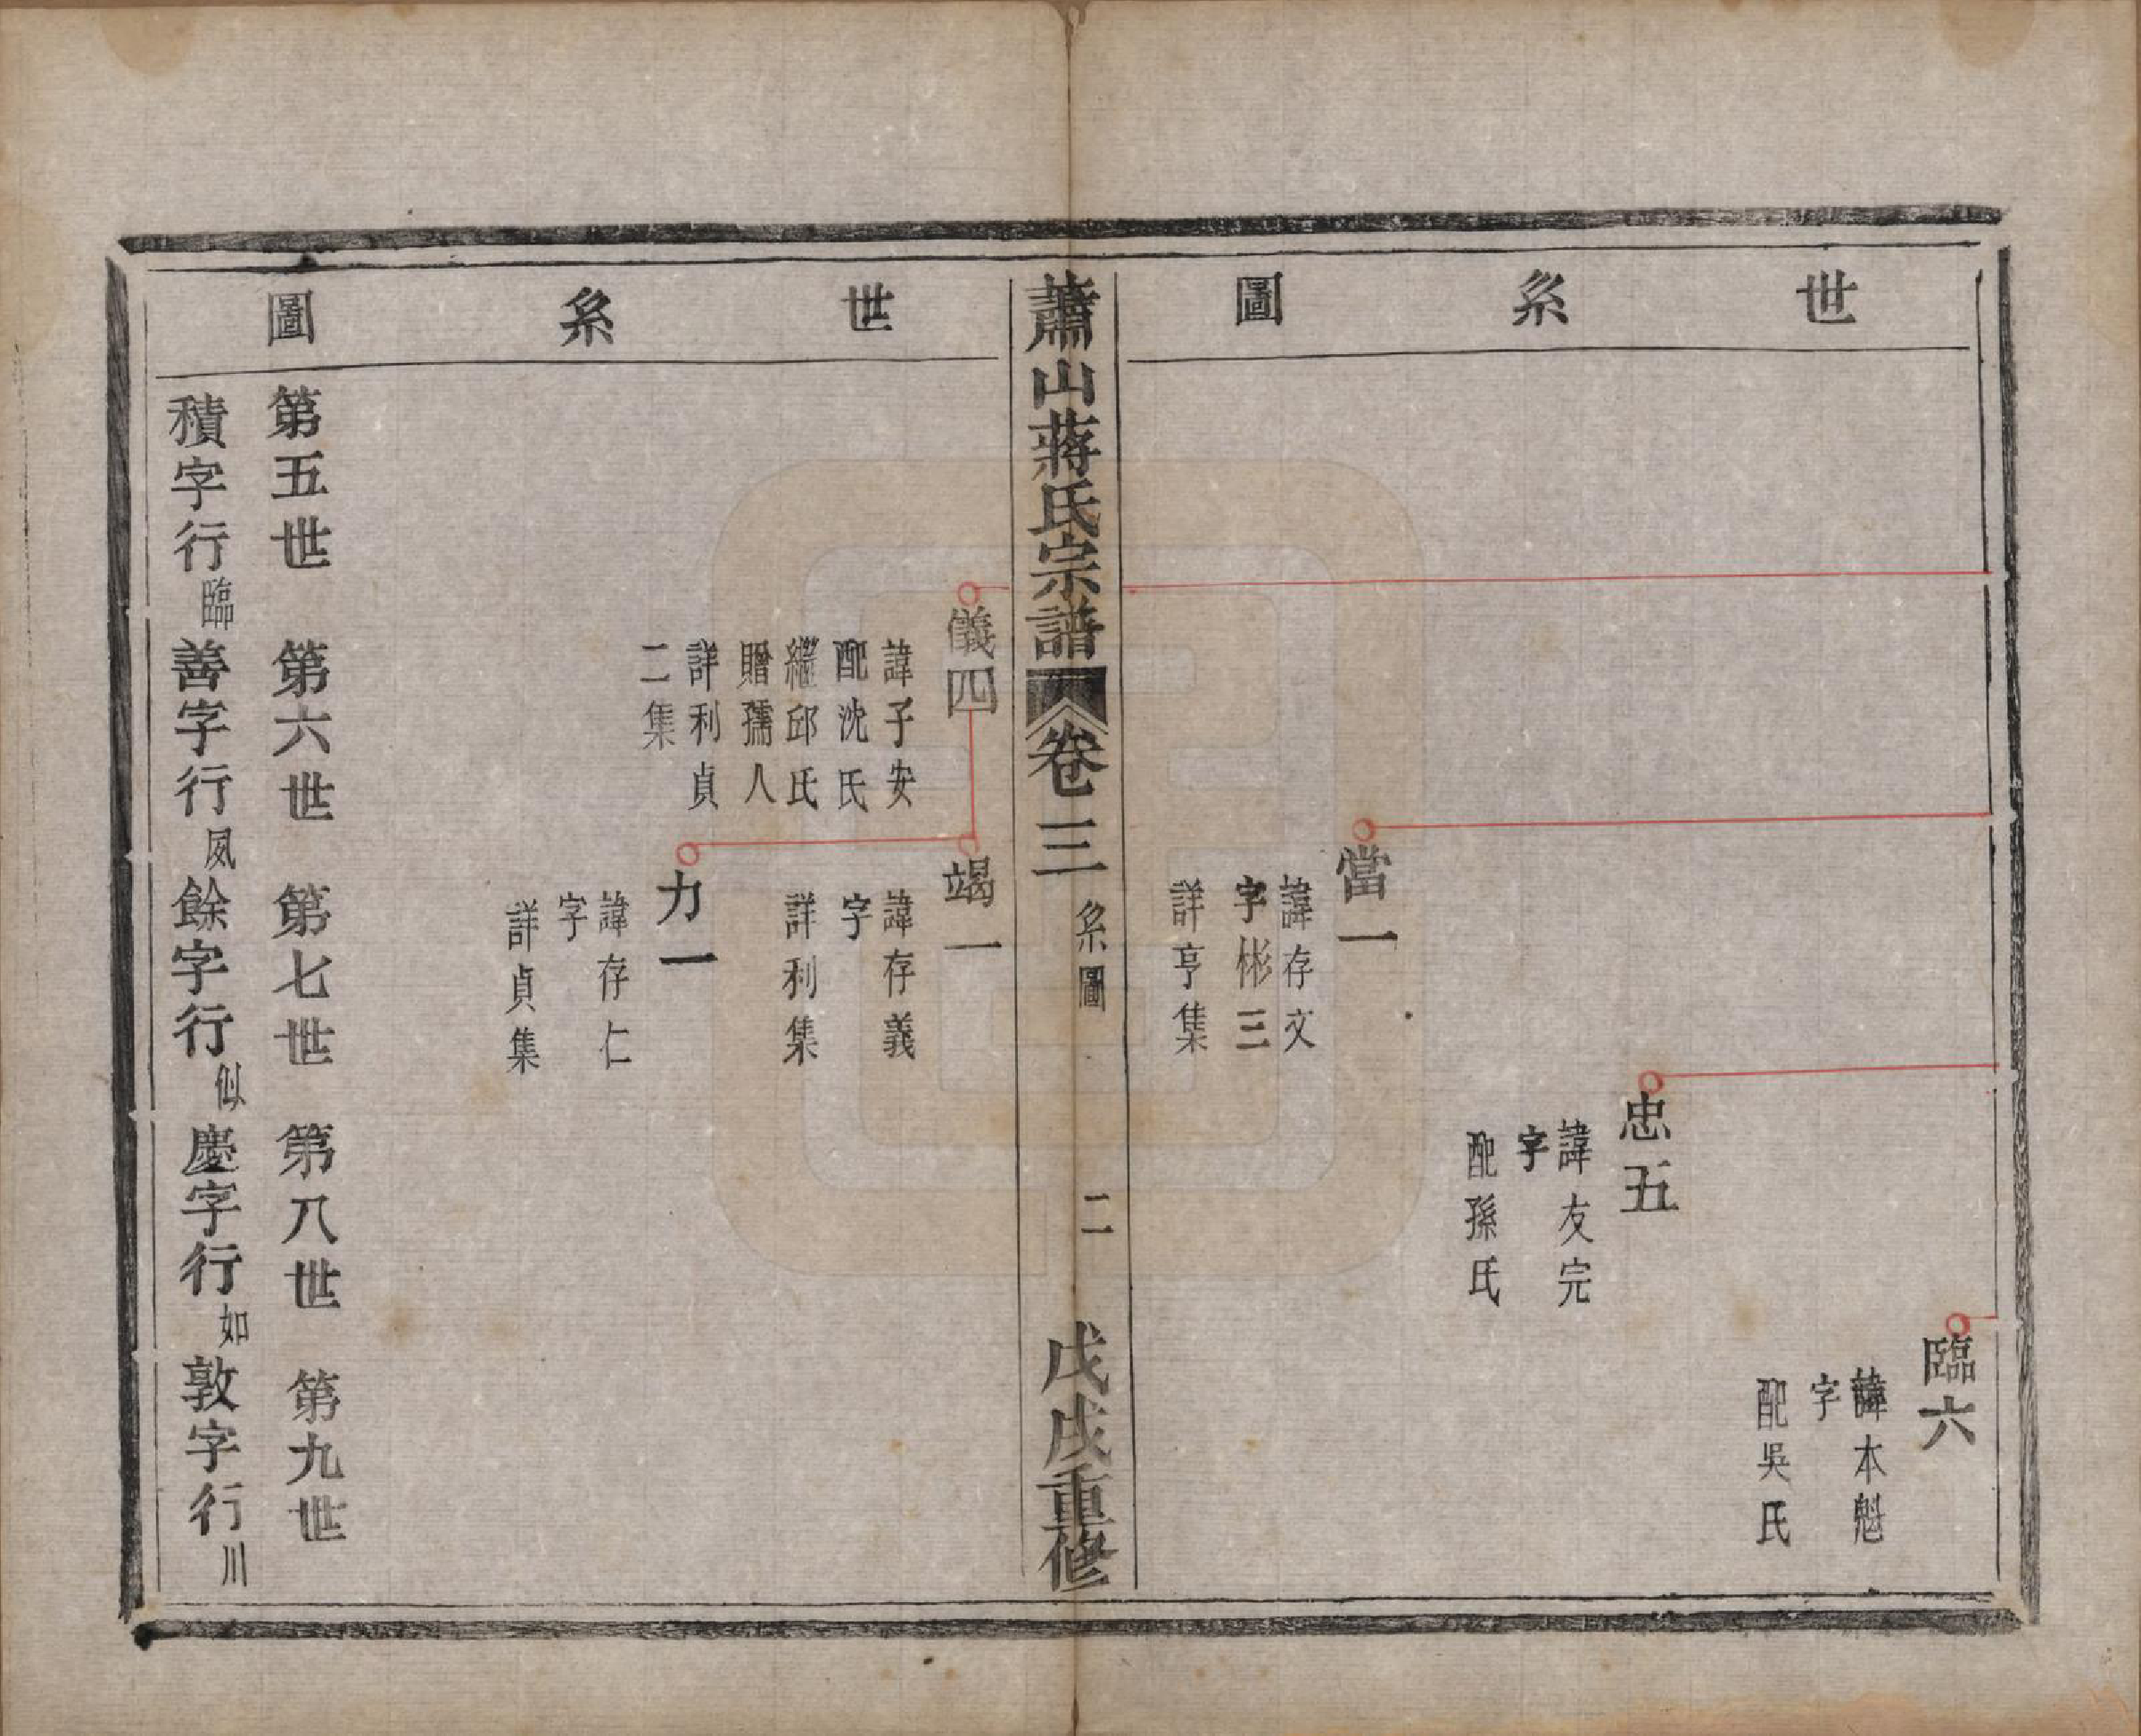 世系圖
臨六
諱本魁
字
配吳氏
忠五
諱友完
字
配孫氏
當一
諱存文
字彬三
詳亨集
蕭山蔣氏宗譜
卷三
系圖
二
戊戌重修
世系圖
儀四
諱子安
配沈氏
繼邱氏
贈孺人
詳利貞
二集
竭一
諱存義
字
詳利集
力一
諱存仁
字
詳貞集
第五世 第六世 第七世 第八世 第九世
積字行臨 善字行夙 餘字行似 慶字行如 敦字行川